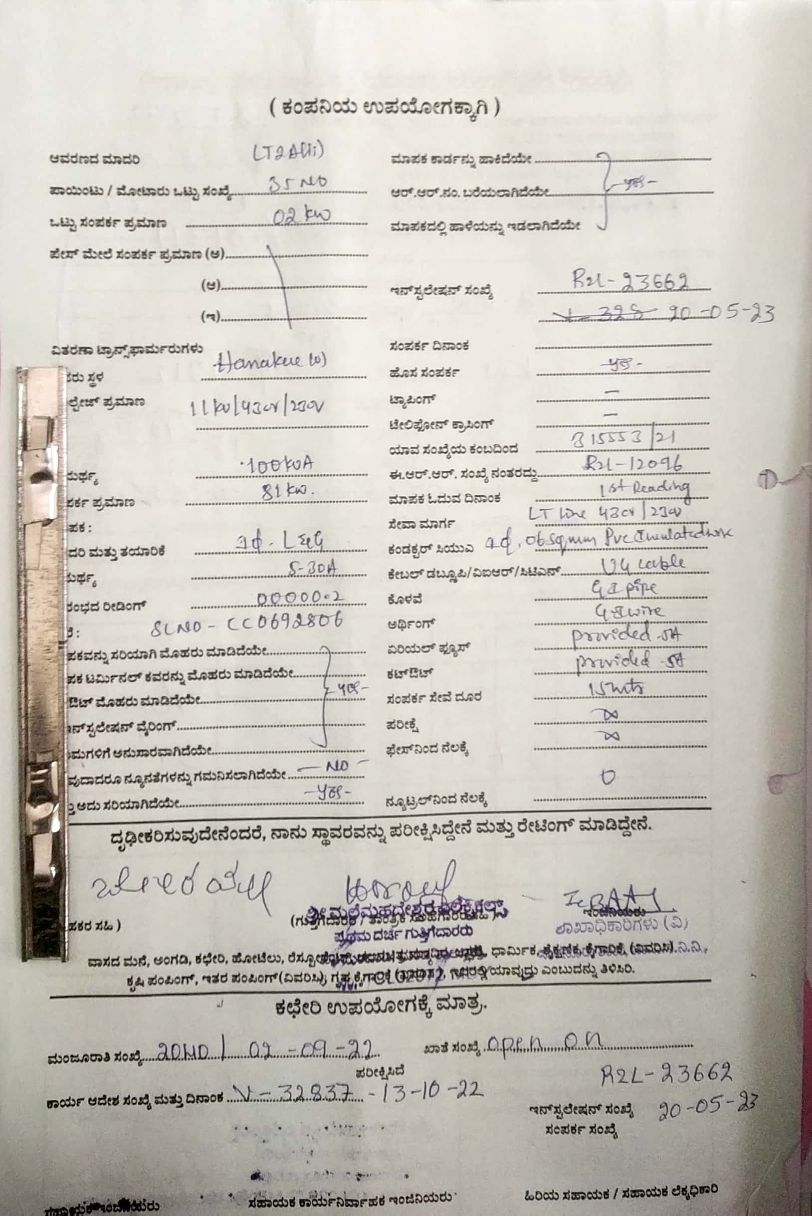 ( ಕಂಪನಿಯ ಉಪಯೋಗಕ್ಕಾಗಿ )
ಆವರಣದ ಮಾದರಿ
ಪಾಯಿಂಟು / ಮೋಟಾರು ಒಟ್ಟು ಸಂಖ್ಯೆ 35 NO
ಒಟ್ಟು ಸಂಪರ್ಕ ಪ್ರಮಾಣ 02 kw
ಪೇಸ್ ಮೇಲೆ ಸಂಪರ್ಕ ಪ್ರಮಾಣ (ಅ)
(ಆ)
(ಇ)
ವಿತರಣಾ ಟ್ರಾನ್ಸ್‌ಫಾರ್ಮರುಗಳು
ಸರು ಸ್ಥಳ
ಲ್ಟೇಜ್ ಪ್ರಮಾಣ 11kv/430v/230v
ಮರ್ಥ್ಯ 100kvA
ಪರ್ಕ ಪ್ರಮಾಣ 81 kw.
ಪಕ :
ದರಿ ಮತ್ತು ತಯಾರಿಕೆ 1ф. L&G
ಮರ್ಥ್ಯ 5-30A
ರಂಭದ ರೀಡಿಂಗ್ 00000.2
SLNO - CC0692806
ಪಕವನ್ನು ಸರಿಯಾಗಿ ಮೊಹರು ಮಾಡಿದೆಯೇ
ಪಕ ಟರ್ಮಿನಲ್ ಕವರನ್ನು ಮೊಹರು ಮಾಡಿದೆಯೇ
ಔಟ್ ಮೊಹರು ಮಾಡಿದೆಯೇ -yes-
ನ್‌ಸ್ಟಲೇಷನ್ ವೈರಿಂಗ್
ಮಗಳಿಗೆ ಅನುಸಾರವಾಗಿದೆಯೇ
ವುದಾದರೂ ನ್ಯೂನತೆಗಳನ್ನು ಗಮನಿಸಲಾಗಿದೆಯೇ - NO -
ತ್ತು ಅದು ಸರಿಯಾಗಿದೆಯೇ -yes-
ಮಾಪಕ ಕಾರ್ಡನ್ನು ಹಾಕಿದೆಯೇ
ಆರ್.ಆರ್.ನಂ. ಬರೆಯಲಾಗಿದೆಯೇ -yes-
ಮಾಪಕದಲ್ಲಿ ಹಾಳೆಯನ್ನು ಇಡಲಾಗಿದೆಯೇ
ಇನ್‌ಸ್ಟಲೇಷನ್ ಸಂಖ್ಯೆ R2L-23662
20-05-23
ಸಂಪರ್ಕ ದಿನಾಂಕ
ಹೊಸ ಸಂಪರ್ಕ -yes-
ಟ್ಯಾಪಿಂಗ್ -
ಟೇಲಿಫೋನ್ ಕ್ರಾಸಿಂಗ್ -
ಯಾವ ಸಂಖ್ಯೆಯ ಕಂಬದಿಂದ 315553/21
ಈ.ಆರ್.ಆರ್. ಸಂಖ್ಯೆ ನಂತರದ್ದು R2L-12096
ಮಾಪಕ ಓದುವ ದಿನಾಂಕ 1st Reading
ಸೇವಾ ಮಾರ್ಗ LT line 430v/230v
ಕಂಡಕ್ಟರ್ ಸಿಯುಎ 06 sqmm Pvc Insulated wire
ಕೇಬಲ್ ಡಬ್ಲೂಪಿ/ವಿಐಆರ್/ಸಿಟಿಎಸ್ UG cable
ಕೊಳವೆ GI pipe
ಅರ್ಥಿಂಗ್ GI wire
ಏರಿಯಲ್ ಫ್ಯೂಸ್ provided -5A
ಕಟ್‌ಔಟ್ provided -5A
ಸಂಪರ್ಕ ಸೇವೆ ದೂರ 15mts
ಪರೀಕ್ಷೆ
ಫೇಸ್‌ನಿಂದ ನೆಲಕ್ಕೆ
ನ್ಯೂಟ್ರಲ್‌ನಿಂದ ನೆಲಕ್ಕೆ 0
ದೃಢೀಕರಿಸುವುದೇನೆಂದರೆ, ನಾನು ಸ್ಥಾವರವನ್ನು ಪರೀಕ್ಷಿಸಿದ್ದೇನೆ ಮತ್ತು ರೇಟಿಂಗ್ ಮಾಡಿದ್ದೇನೆ.
ಹಕರ ಸಹಿ )
ಶ್ರೀ ಮಲೆಮಹದೇಶ್ವರ ಎಲೆಕ್ಟ್ರಿಕಲ್ಸ್
ಪ್ರಥಮ ದರ್ಜೆ ಗುತ್ತಿಗೆದಾರರು
ಇಂಜಿನಿಯರು
ಶಾಖಾಧಿಕಾರಿಗಳು (ವಿ)
ವಾಸದ ಮನೆ, ಅಂಗಡಿ, ಕಛೇರಿ, ಹೋಟೆಲು, ಧಾರ್ಮಿಕ, ಶೈಕ್ಷಣಿಕ, ಕೈಗಾರಿಕೆ, (ವಿವರಿಸಿ)
ಕೃಷಿ ಪಂಪಿಂಗ್, ಇತರ ಪಂಪಿಂಗ್(ವಿವರಿಸಿ), ಗೃಹ ಕೈಗಾರಿಕೆ ಇದರಲ್ಲಿ ಯಾವುದ್ದು ಎಂಬುದನ್ನು ತಿಳಿಸಿರಿ.
ಕಛೇರಿ ಉಪಯೋಗಕ್ಕೆ ಮಾತ್ರ.
ಮಂಜೂರಾತಿ ಸಂಖ್ಯೆ 20NO / 02 -09 -22 ಖಾತೆ ಸಂಖ್ಯೆ open on
ಪರೀಕ್ಷಿಸಿದೆ
R2L-23662
ಕಾರ್ಯ ಆದೇಶ ಸಂಖ್ಯೆ ಮತ್ತು ದಿನಾಂಕ V-32837 -13-10-22
ಇನ್‌ಸ್ಟಲೇಷನ್ ಸಂಖ್ಯೆ 20-05-23
ಸಂಪರ್ಕ ಸಂಖ್ಯೆ
ಸಹಾಯಕ ಇಂಜಿನಿಯರು ಸಹಾಯಕ ಕಾರ್ಯನಿರ್ವಾಹಕ ಇಂಜಿನಿಯರು ಹಿರಿಯ ಸಹಾಯಕ / ಸಹಾಯಕ ಲೆಕ್ಕಧಿಕಾರಿ